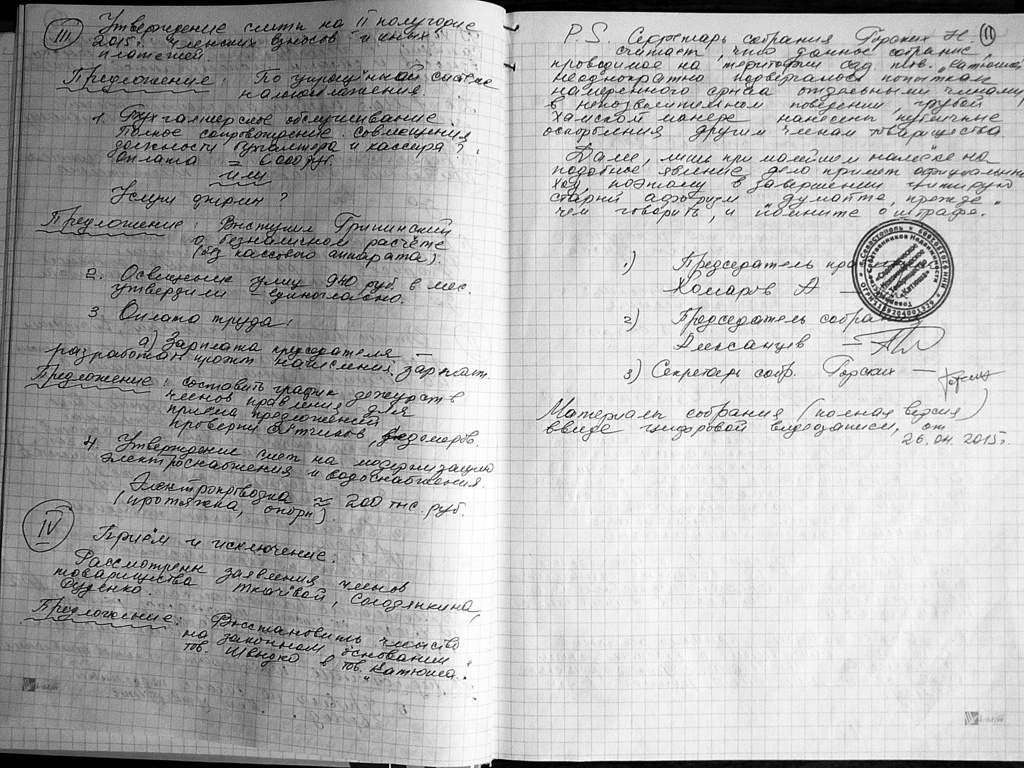 III Утверждение сметы на II полугодие
2015г. членских взносов "и иных"
платежей.
Предложение: По упрощённой системе
налогообложения.
1. Бухгалтерское обслуживание.
Полное сопровождение. Совмещения
должности бухгалтера и кассира?
Оплата = 6000 руб.
или
Услуги фирмы?
Предложение: Выступил Грипинский
о безналичном расчёте
(без кассового аппарата).
2. Освещение улиц 940 руб в мес.
утвердили - единогласно.
3. Оплата труда:
а) Зарплата председателя —
разработан проект начисления зарплат.
Предложение: составить график дежурств
членов правления для
приёма предложений
проверки счётчиков, водомеров.
4. Утверждение смет на модернизацию
электроснабжения и водоснабжения.
Электропроводка ≈ 200 тыс. руб.
(протяжка, опоры).
IV Приём и исключение.
Рассмотрены заявления членов
товарищества Ткачёвой, Солодянкина,
Руденко.
Предложение: Восстановить членство
на законном основании
тов. Швыдко в тов. "Катюша".
P.S. Секретарь собрания Горских Н. 11
считает что данное собрание
проводимое на территории сад. тов. "Катюша"
неоднократно подвергалось попыткам
намеренного срыва отдельными членами,
в непозволительном поведении, грубой
хамской манере нанесены публичные
оскорбления другим членам товарищества
Далее, лишь при малейшем намёке на
подобное явление дело примет официальный
ход, поэтому в завершении цитирую
старый афоризм "думайте, прежде
чем говорить, и помните о штрафе."
1) Председатель
Хомаров А —
2) Председатель собрания
Алексанцев —
3) Секретарь собр. Горских —
Материалы собрания (полная версия)
ввиде цифровой видеозаписи, от
26.04.2015г.